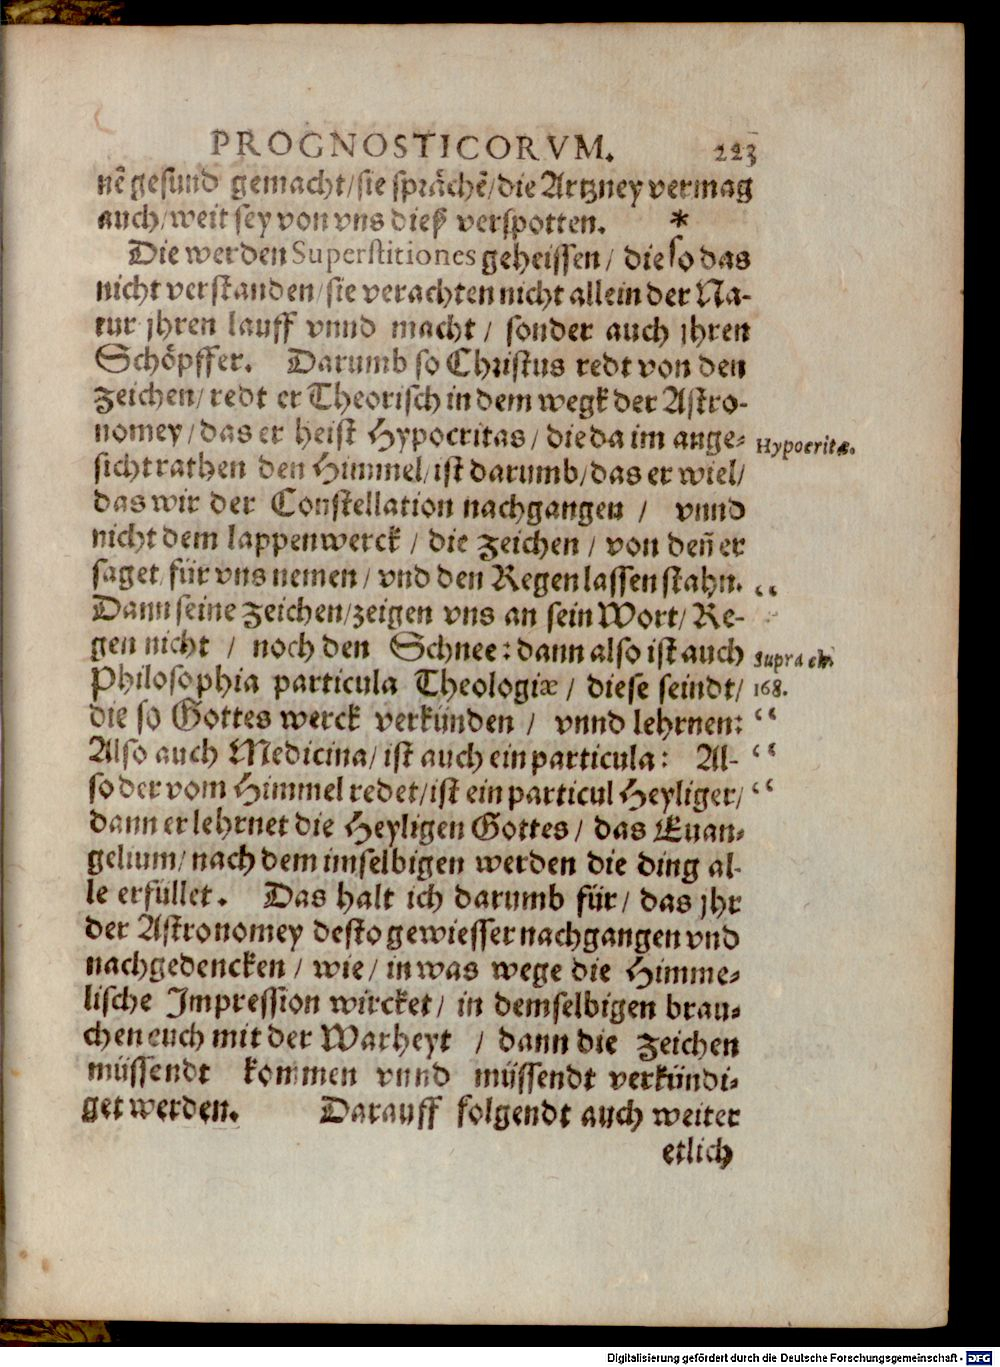 PROGNOSTICORVM. 223
nẽ gesund gemacht/sie sprächẽ/die Artzney vermag
auch/weit sey von vns dieß verspotten. *
Die werden Superstitiones geheissen/ die so das
nicht verstanden/sie verachten nicht allein der Na-
tur jhren lauff vnnd macht/ sonder auch jhren
Schöpffer. Darumb so Christus redt von den
zeichen/redt er Theorisch in dem wegk der Astro-
nomey/das er heist Hypocritas/die da im ange-
Hypocritæ.
sicht rathen den Himmel/ist darumb/das er wiel/
das wir der Constellation nachgangen / vnnd
nicht dem lappenwerck/ die zeichen/ von den̄ er
saget/für vns nemen/vnd den Regen lassen stahn.
“
Dann seine zeichen/zeigen vns an sein Wort/Re-
gen nicht / noch den Schnee: dann also ist auch
Supra
Philosophia particula Theologiæ/ diese seindt/
168.
die so Gottes werck verkünden / vnnd lehrnen:
“
Also auch Medicina/ist auch ein particula: Al-
“
so der vom Himmel redet/ist ein particul Heyliger/
“
dann er lehrnet die Heyligen Gottes/ das Euan-
gelium/nach dem imselbigen werden die ding al-
le erfüllet. Das halt ich darumb für/ das jhr
der Astronomey desto gewiesser nachgangen vnd
nachgedencken/ wie/in was wege die Himme-
lische Impression wircket/ in demselbigen brau-
chen euch mit der Warheyt / dann die zeichen
müssendt kommen vnnd müssendt verkündi-
get werden. Darauff folgendt auch weiter
etlich
Digitalisierung gefördert durch die Deutsche Forschungsgemeinschaft - DFG